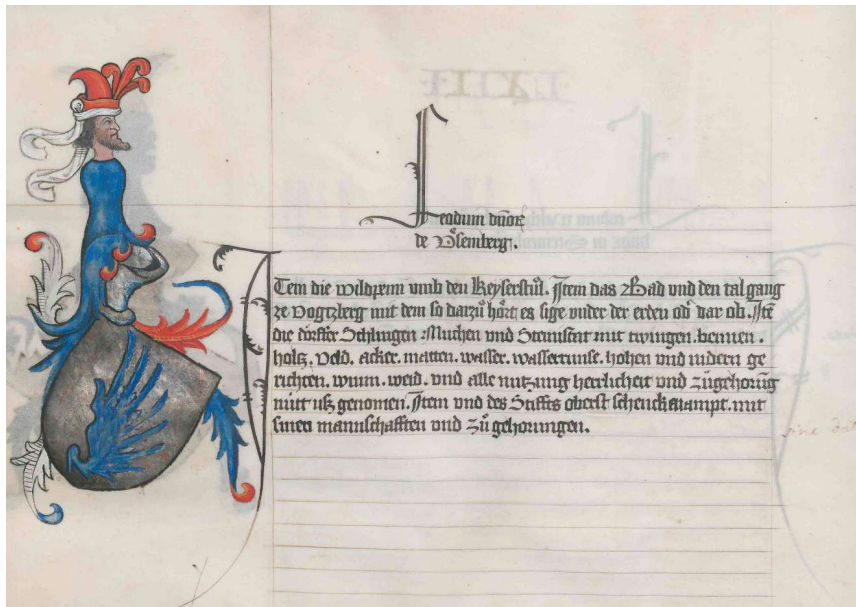 Feodum dn̄oꝝ
de Vͦsemberg.
Item die wildpenn vmb den Keyserstuͦl. Item das Bad vnd den tal gang
ze vogtzberg mit dem so darzuͦ hoͤrt es sige vnder der erden od' dar ob. Itē
die doͤrffer Schlingen Muchen vnd Steinstat mit twingen. bennen.
holtz. veld. acker. matten. wasser. wasserrunse. hohen vnd nidern ge
richten. wunn. weid. vnd alle nutzung herrlicheit vnd zuͦgehorūg
nüt usz genomen. Item vnd des Stiffts oberst schenckmampt. mit
sinen manschafften vnd zuͦ gehorungen.